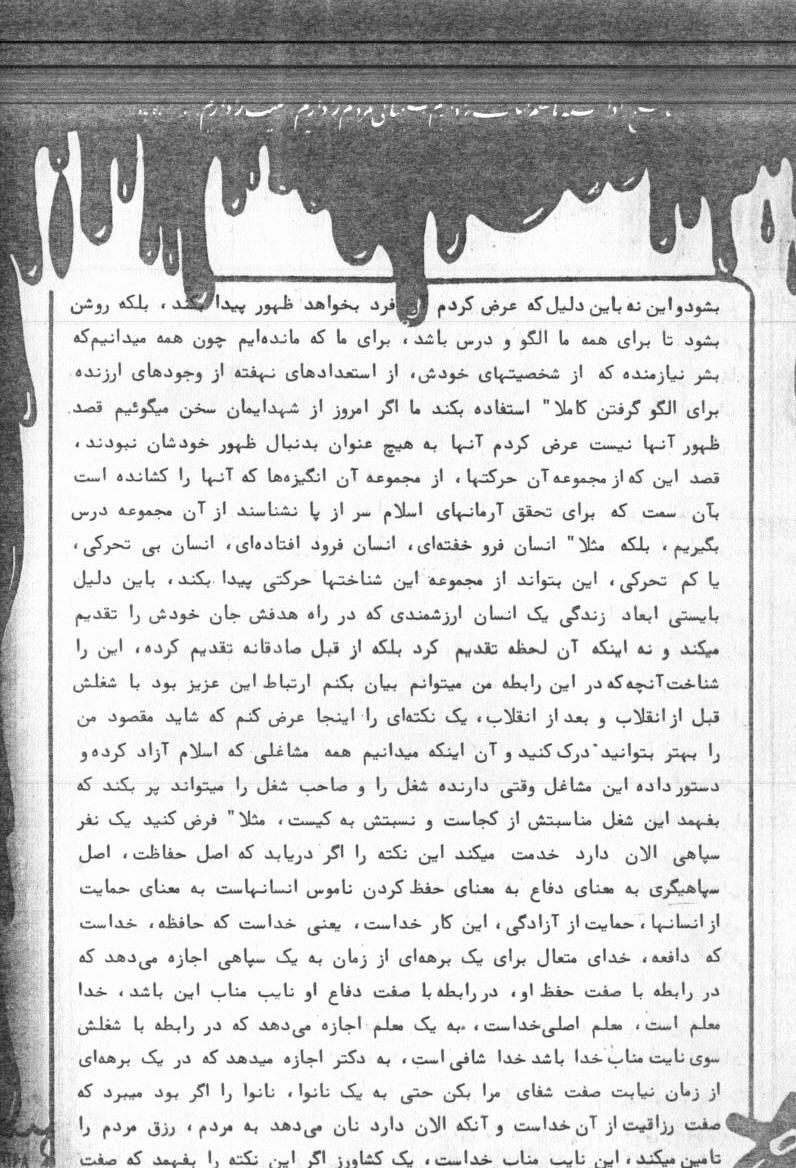 بشودواین نه باین دلیل که عرض کردم آن فرد بخواهد ظهور پیدا بکند، بلکه روشن
بشود تا برای همه ما الگو و درس باشد، برای ما که مانده‌ایم چون همه میدانیم‌که
بشر نیازمنده که از شخصیتهای خودش، از استعدادهای نهفته از وجودهای ارزنده
برای الگو گرفتن کاملا" استفاده بکند ما اگر امروز از شهدایمان سخن میگوئیم قصد
ظهور آنها نیست عرض کردم آنها به هیچ عنوان بدنبال ظهور خودشان نبودند،
قصد این که از مجموعه آن حرکتها، از مجموعه آن انگیزه‌ها که آنها را کشانده است
بآن سمت که برای تحقق آرمانهای اسلام سر از پا نشناسند از آن مجموعه درس
بگیریم، بلکه مثلا" انسان فرو خفته‌ای، انسان فرود افتاده‌ای، انسان بی تحرکی،
یا کم تحرکی، این بتواند از مجموعه این شناختها حرکتی پیدا بکند، باین دلیل
بایستی ابعاد زندگی یک انسان ارزشمندی که در راه هدفش جان خودش را تقدیم
میکند و نه اینکه آن لحظه تقدیم کرد بلکه از قبل صادقانه تقدیم کرده، این را
شناخت آنچه که در این رابطه من میتوانم بیان بکنم ارتباط این عزیز بود با شغلش
قبل از انقلاب و بعد از انقلاب، یک نکته‌ای را اینجا عرض کنم که شاید مقصود من
را بهتر بتوانید درک کنید و آن اینکه میدانیم همه مشاغلی که اسلام آزاد کرده و
دستور داده این مشاغل وقتی دارنده شغل را و صاحب شغل را میتواند پر بکند که
بفهمد این شغل مناسبتش از کجاست و نسبتش به کیست، مثلا" فرض کنید یک نفر
سپاهی الان دارد خدمت میکند این نکته را اگر دریابد که اصل حفاظت، اصل
سپاهیگری به معنای دفاع به معنای حفظ کردن ناموس انسانهاست به معنای حمایت
از انسانها، حمایت از آزادگی، این کار خداست، یعنی خداست که حافظه، خداست
که دافعه، خدای متعال برای یک برهه‌ای از زمان به یک سپاهی اجازه می‌دهد که
در رابطه با صفت حفظ او، در رابطه با صفت دفاع او نایب مناب این باشد، خدا
معلم است، معلم اصلی‌خداست، به یک معلم اجازه می‌دهد که در رابطه با شغلش
سوی نایت مناب خدا باشد خدا شافی است، به دکتر اجازه میدهد که در یک برهه‌ای
از زمان نیابت صفت شفای مرا بکن حتی به یک نانوا، نانوا را اگر بود میبرد که
صفت رزاقیت از آن خداست و آنکه الان دارد نان می‌دهد به مردم، رزق مردم را
تامین میکند، این نایب مناب خداست، یک کشاورز اگر این نکته را بفهمد که صفت